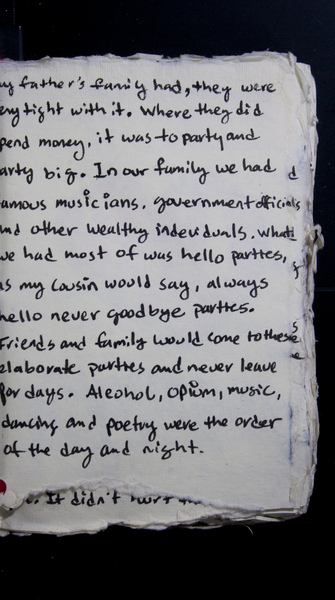 my father's family had, they were
ery tight with it. Where they did
pend money, it was to party and
arty big. In our family we had
amous musicians, government officials
and other wealthy indeviduals. What
we had most of was hello parties,
as my cousin would say, always
hello never goodbye parties.
Friends and family would come to these
elaborate parties and never leave
for days. Alcohol, opium, music,
dancing and poetry were the order
of the day and night.
. It didn't hurt